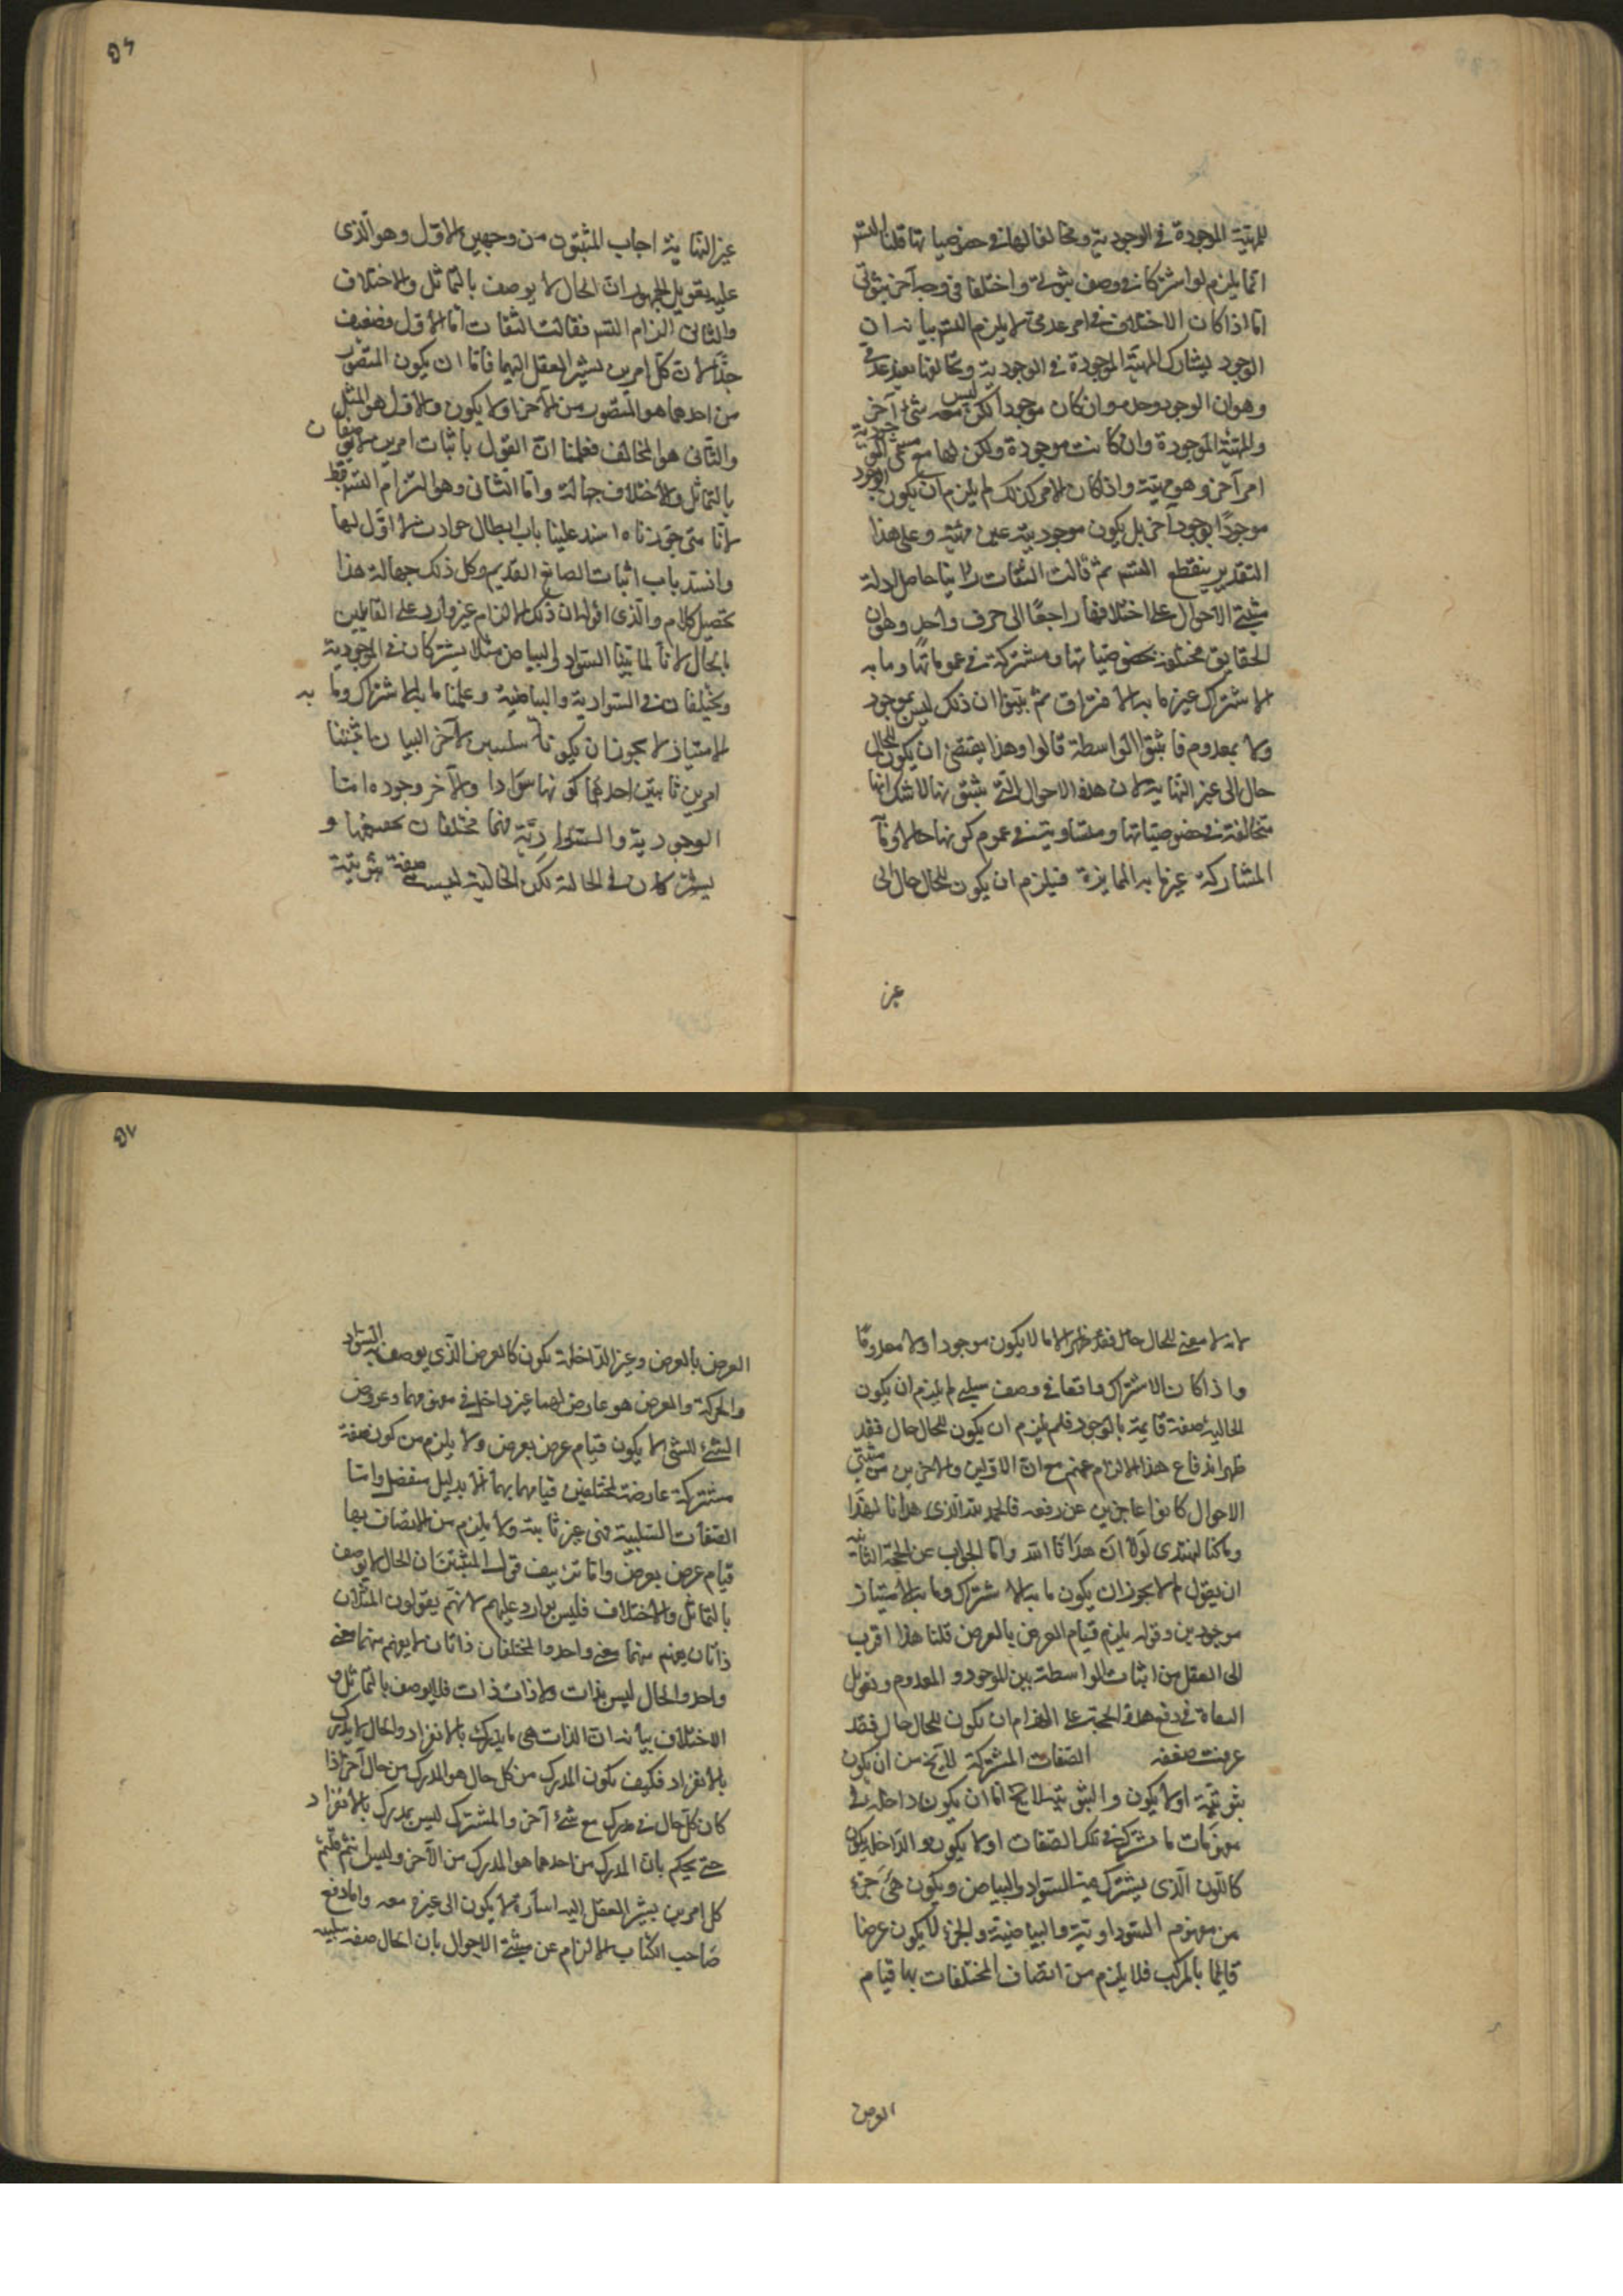 للمهيّة الموجودة في الموجودية ومخالفا لها في خصوصياتها قلنا التسلسل
انما يلزم لو اشتركا في وصف ثبوتي واختلفا في وجه آخر ثبوتي
اما اذا كان الاختلاف في امر عدمي لا يلزم التسلسل بيانه ان
الوجود يشارك المهيّة الموجودة في الموجودية ويخالفها بقيد عدمي
وهو ان الوجود وحده وان كان موجودا لكن ليس معه شئ آخر
والمهيّة الموجودة وان كانت موجودة ولكن لها مع مسمى الموجودية
امر آخر وهو مهيّة واذا كان الامر كذلك لم يلزم ان يكون الوجود
موجودًا بوجود آخر بل يكون موجوديته عين مهيّته وعلى هذا
التقدير ينقطع التسلسل ثم قالت النفات لاثبتا حاصل ادلة
مثبتي الاحوال على اختلافها راجعًا الى حرف واحد وهو ان
الحقايق مختلفة بخصوصياتها ومشتركة في عموماتها وما به
الاشتراك غير ما به الافتراق ثم بيّنوا ان ذلك ليس بموجود
ولا بمعدوم فاثبتوا الواسطة قالوا وهذا يقتضي ان يكون للحال
حال الى غير النهاية لان هذه الاحوال التي يثبتونها لا شك انها
متخالفة في خصوصياتها ومتساوية في عموم كونها حالا وما
المشاركة غير ما به الممايزة فيلزم ان يكون للحال حال الى
غير
غير النهاية اجاب المثبتون من وجهين الاول وهو الّذى
عليه تعويل الجمهور ان الحال لا يوصف بالتماثل والاختلاف
والثانى الزام التسلسل فقالت النفات اما الاول فضعيف
جدًّا لان كل امرين يشير العقل اليهما فامّا ان يكون المتصور
من احدهما هو المتصور من الآخر او لا يكون والاول هو المثل
والثانى هو المخالف فعلمنا ان القول باثبات امرين لا يوصفان
بالتماثل والاختلاف جهالة وامّا الثانى وهو التزام التسلسل فقط
لانا متى جوّزناه انسد علينا باب ابطال حوادث لا اول لها
وانسد باب اثبات الصانع القديم وكل ذلك جهالة هذا
تحصيل كلام والّذى اقوله ان ذلك الالزام غير وارد على القايلين
بالحال لانا لما بيّنا السواد والبياض مثلا يشتركان في الموجودية
ويختلفان في السوادية والبياضية وعلمنا ما به الاشتراك وما به
الامتياز لا يجوز ان يكونا سلبيين لآخر البيان فاثبتنا
امرين ثابتين احدهما كونها سوادا والآخر وجوده امّا
الوجودية والسّواديّة فهما مختلفان بحقيقتها و
يشتركان في الحالية لكن الحالية ليست صفة ثبوتية
لانه لا معنى للحال حال فقد ظهر الا ما لا يكون موجودا ولا معدومًا
واذا كان الاشتراك واقعا في وصف سلبي لم يلزم ان يكون
الحالية صفة قايمة بالوجود فلم يلزم ان يكون للحال حال فقد
ظهر اندفاع هذا الالزام عنهم مع ان الاولين والاخرين من مثبتي
الاحوال كانوا عاجزين عن رفعه فالحمد لله الذى هدانا لهذا
وما كنا لنهتدى لولا ان هدانا الله واما الجواب عن الحجة الثانية
ان يقول لم لا يجوز ان يكون ما به الاشتراك وما به الامتياز
موجودين وقوله يلزم قيام العرض بالعرض قلنا هذا اقرب
الى العقل من اثبات الواسطة بين الموجود والمعدوم وتعويل
النفاة في دفع هذه الحجة على الزام ان يكون للحال حال فقد
عرفت ضعفه الصفات المشتركة لا يخ من ان يكون
ثبوتية او لا يكون والثبوتية لا يخ اما ان يكون داخلة في
مفهومات ما يشترك في تلك الصفات او لا يكون والداخلة يكون
كاللون الّذى يشترك فيه السواد والبياض ويكون هى جزء
من مفهوم السوداوتية والبياضية والجزء لا يكون عرضا
قايما بالمركب فلا يلزم من اتصاف المختلفات بها قيام
العرض
العرض بالعرض وغير الداخلة يكون كالعرض الذى يوصف به السواد
والحركة والعرض هو عارض لهما غير داخل في مفهومهما وعروض
الشئ للشئ لا يكون قيام عرض بعرض ولا يلزم من كون صفة
مشتركة عارضة لمختلفين قيامها بهما الا بدليل منفصل وامّا
الصفات السلبية فهى غير ثابتة ولا يلزم من الاتصاف بها
قيام عرض بعرض واما تزييف قول المثبتين ان الحال لا يوصف
بالتماثل والاختلاف فليس بوارد عليهم لانهم يقولون المثلان
ذاتان يفهم منهما معنى واحد والمختلفان ذاتان لا يفهم منهما معنى
واحد والحال ليس بذات ولا ذات ذات فلا يوصف بالتماثل و
الاختلاف بيانه ان الذات هى ما يدرك بالانفراد والحال لا يدرك
بالانفراد فكيف يكون المدرك من كل حال هو المدرك من حال آخر اذا
كان كل حال في مدرك مع شئ آخر والمشترك ليس بمدرك بالانفراد
حتى يحكم بان المدرك من احدهما هو المدرك من الآخر وليس
كل امرين يشير العقل اليه اشارة لا يكون الى غيره معه واما دفع
صاحب الكتاب الالزام عن مثبتي الاحوال بان الحال صفة سلبية